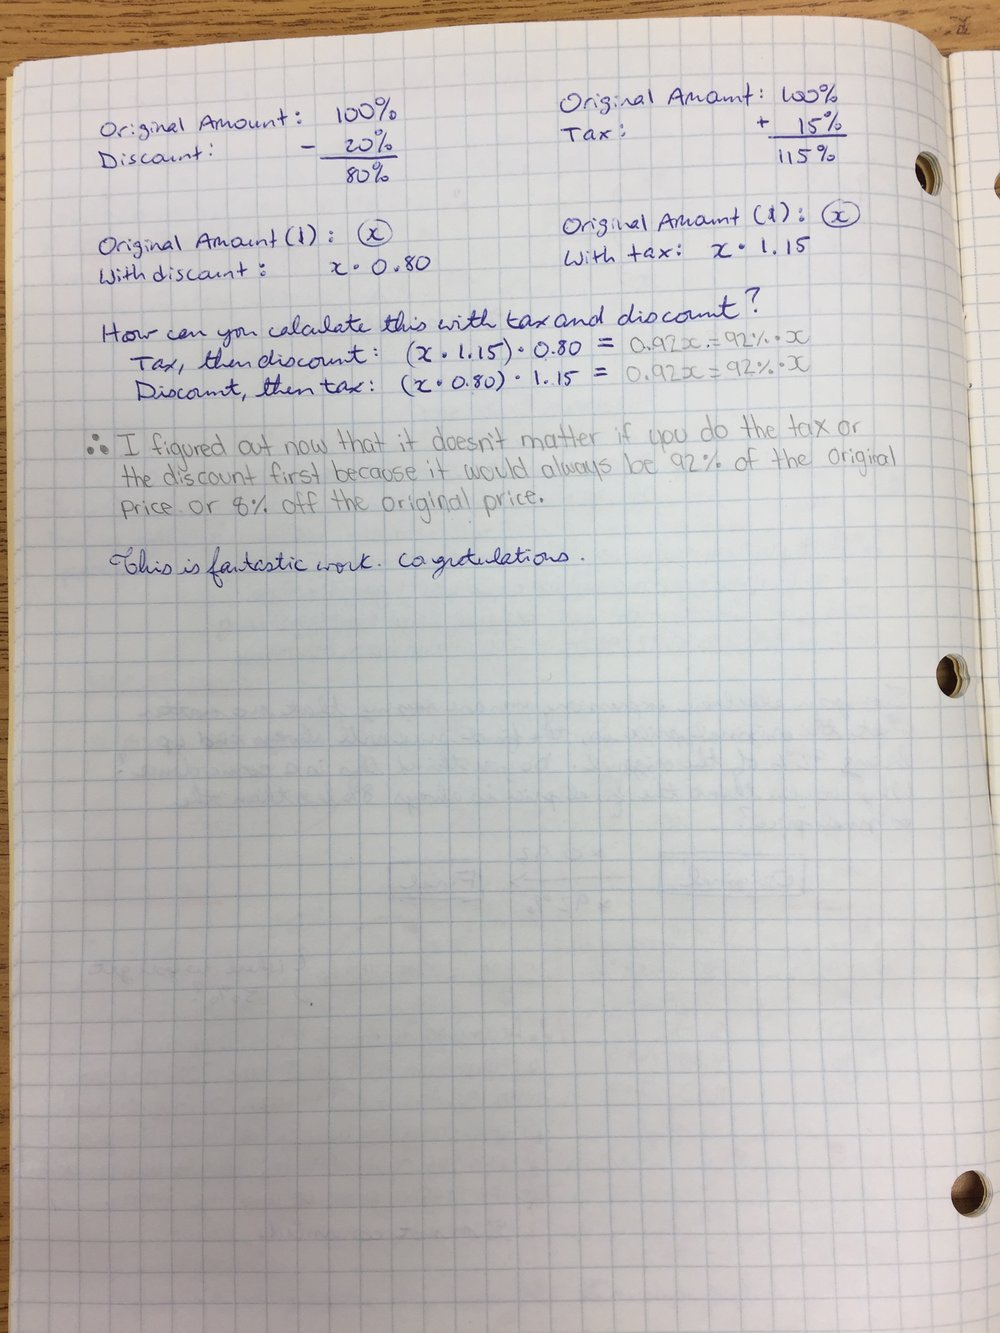 Original Amount: 100%
Discount: - 20%
80%
Original Amount: 100%
Tax: + 15%
115%
Original Amount (1): x
With discount: x · 0.80
Original Amount (1): x
With tax: x · 1.15
How can you calculate this with tax and discount?
Tax, then discount: (x · 1.15) · 0.80 = 0.92x = 92% · x
Discount, then tax: (x · 0.80) · 1.15 = 0.92x = 92% · x
∴ I figured out now that it doesn't matter if you do the tax or
the discount first because it would always be 92% of the original
price or 8% off the original price.
This is fantastic work. Cogratulations.